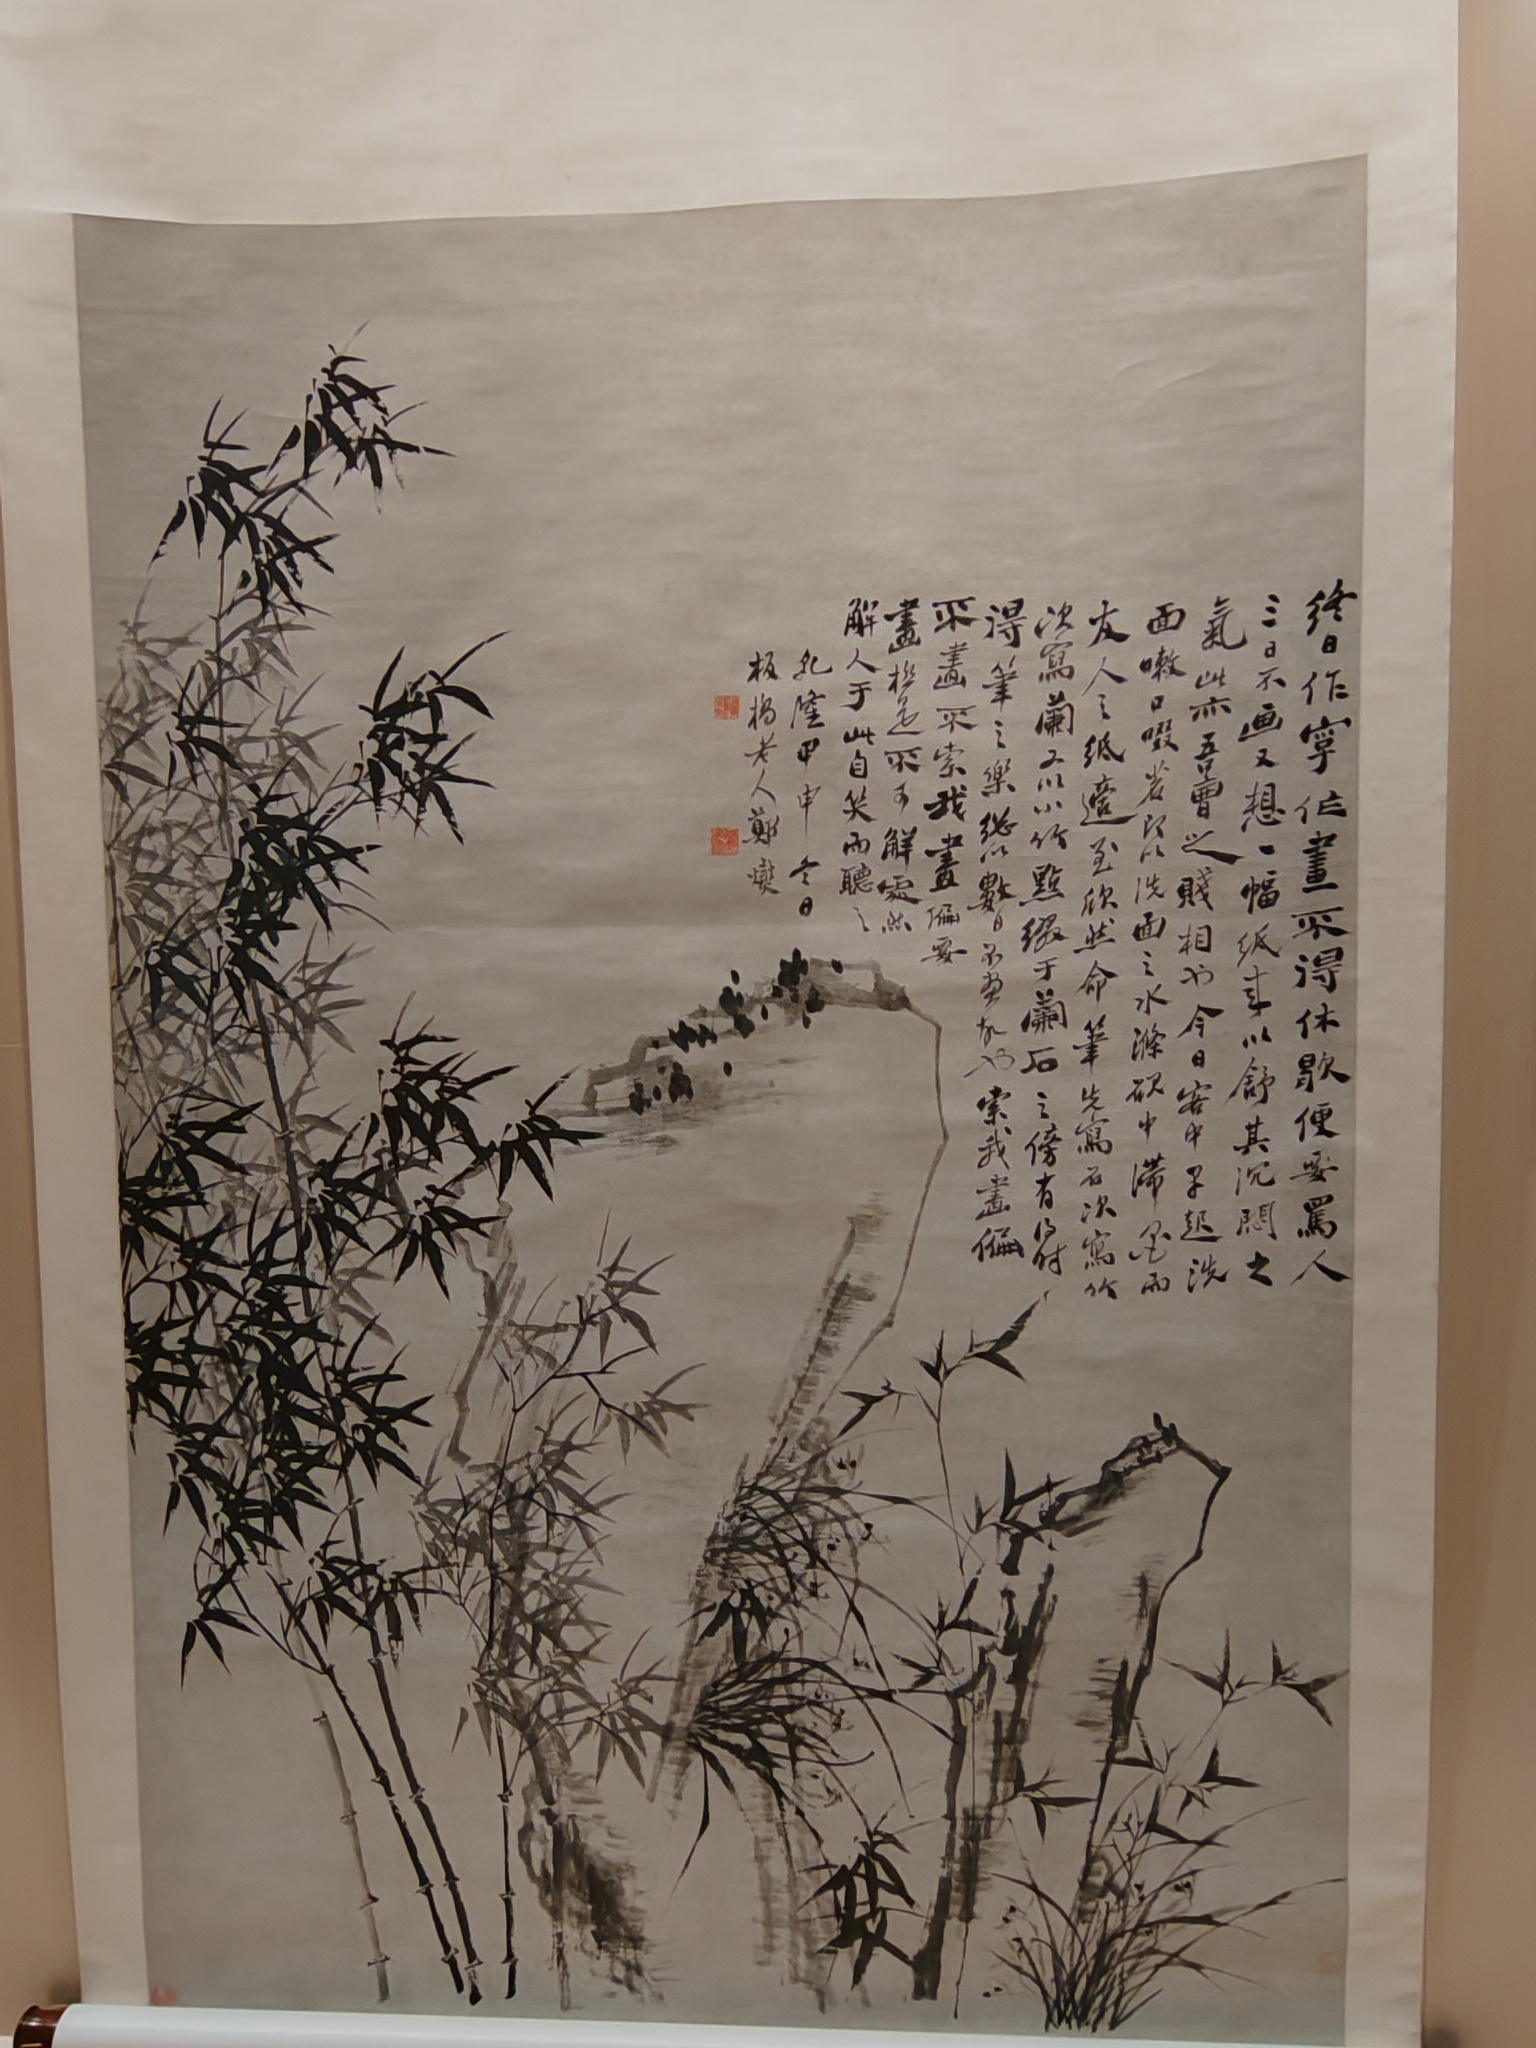 終日作字作畫不得休歇便要罵人
三日不画又想一幅紙來以舒其沉悶之
氣此亦吾曹之賤相也今日客中早起洗
面嗽口啜茗即以洗面之水滌硯中滯墨而
友人之紙適至欣然命筆先寫石次寫竹
次寫蘭又以小竹點綴于蘭石之傍有得時
得筆之樂總以數日不畫故也索我畫偏
不畫不索我畫偏要
畫極是不可解處然
解人于此自笑而聽之
乹隆甲申冬日
板橋老人鄭燮